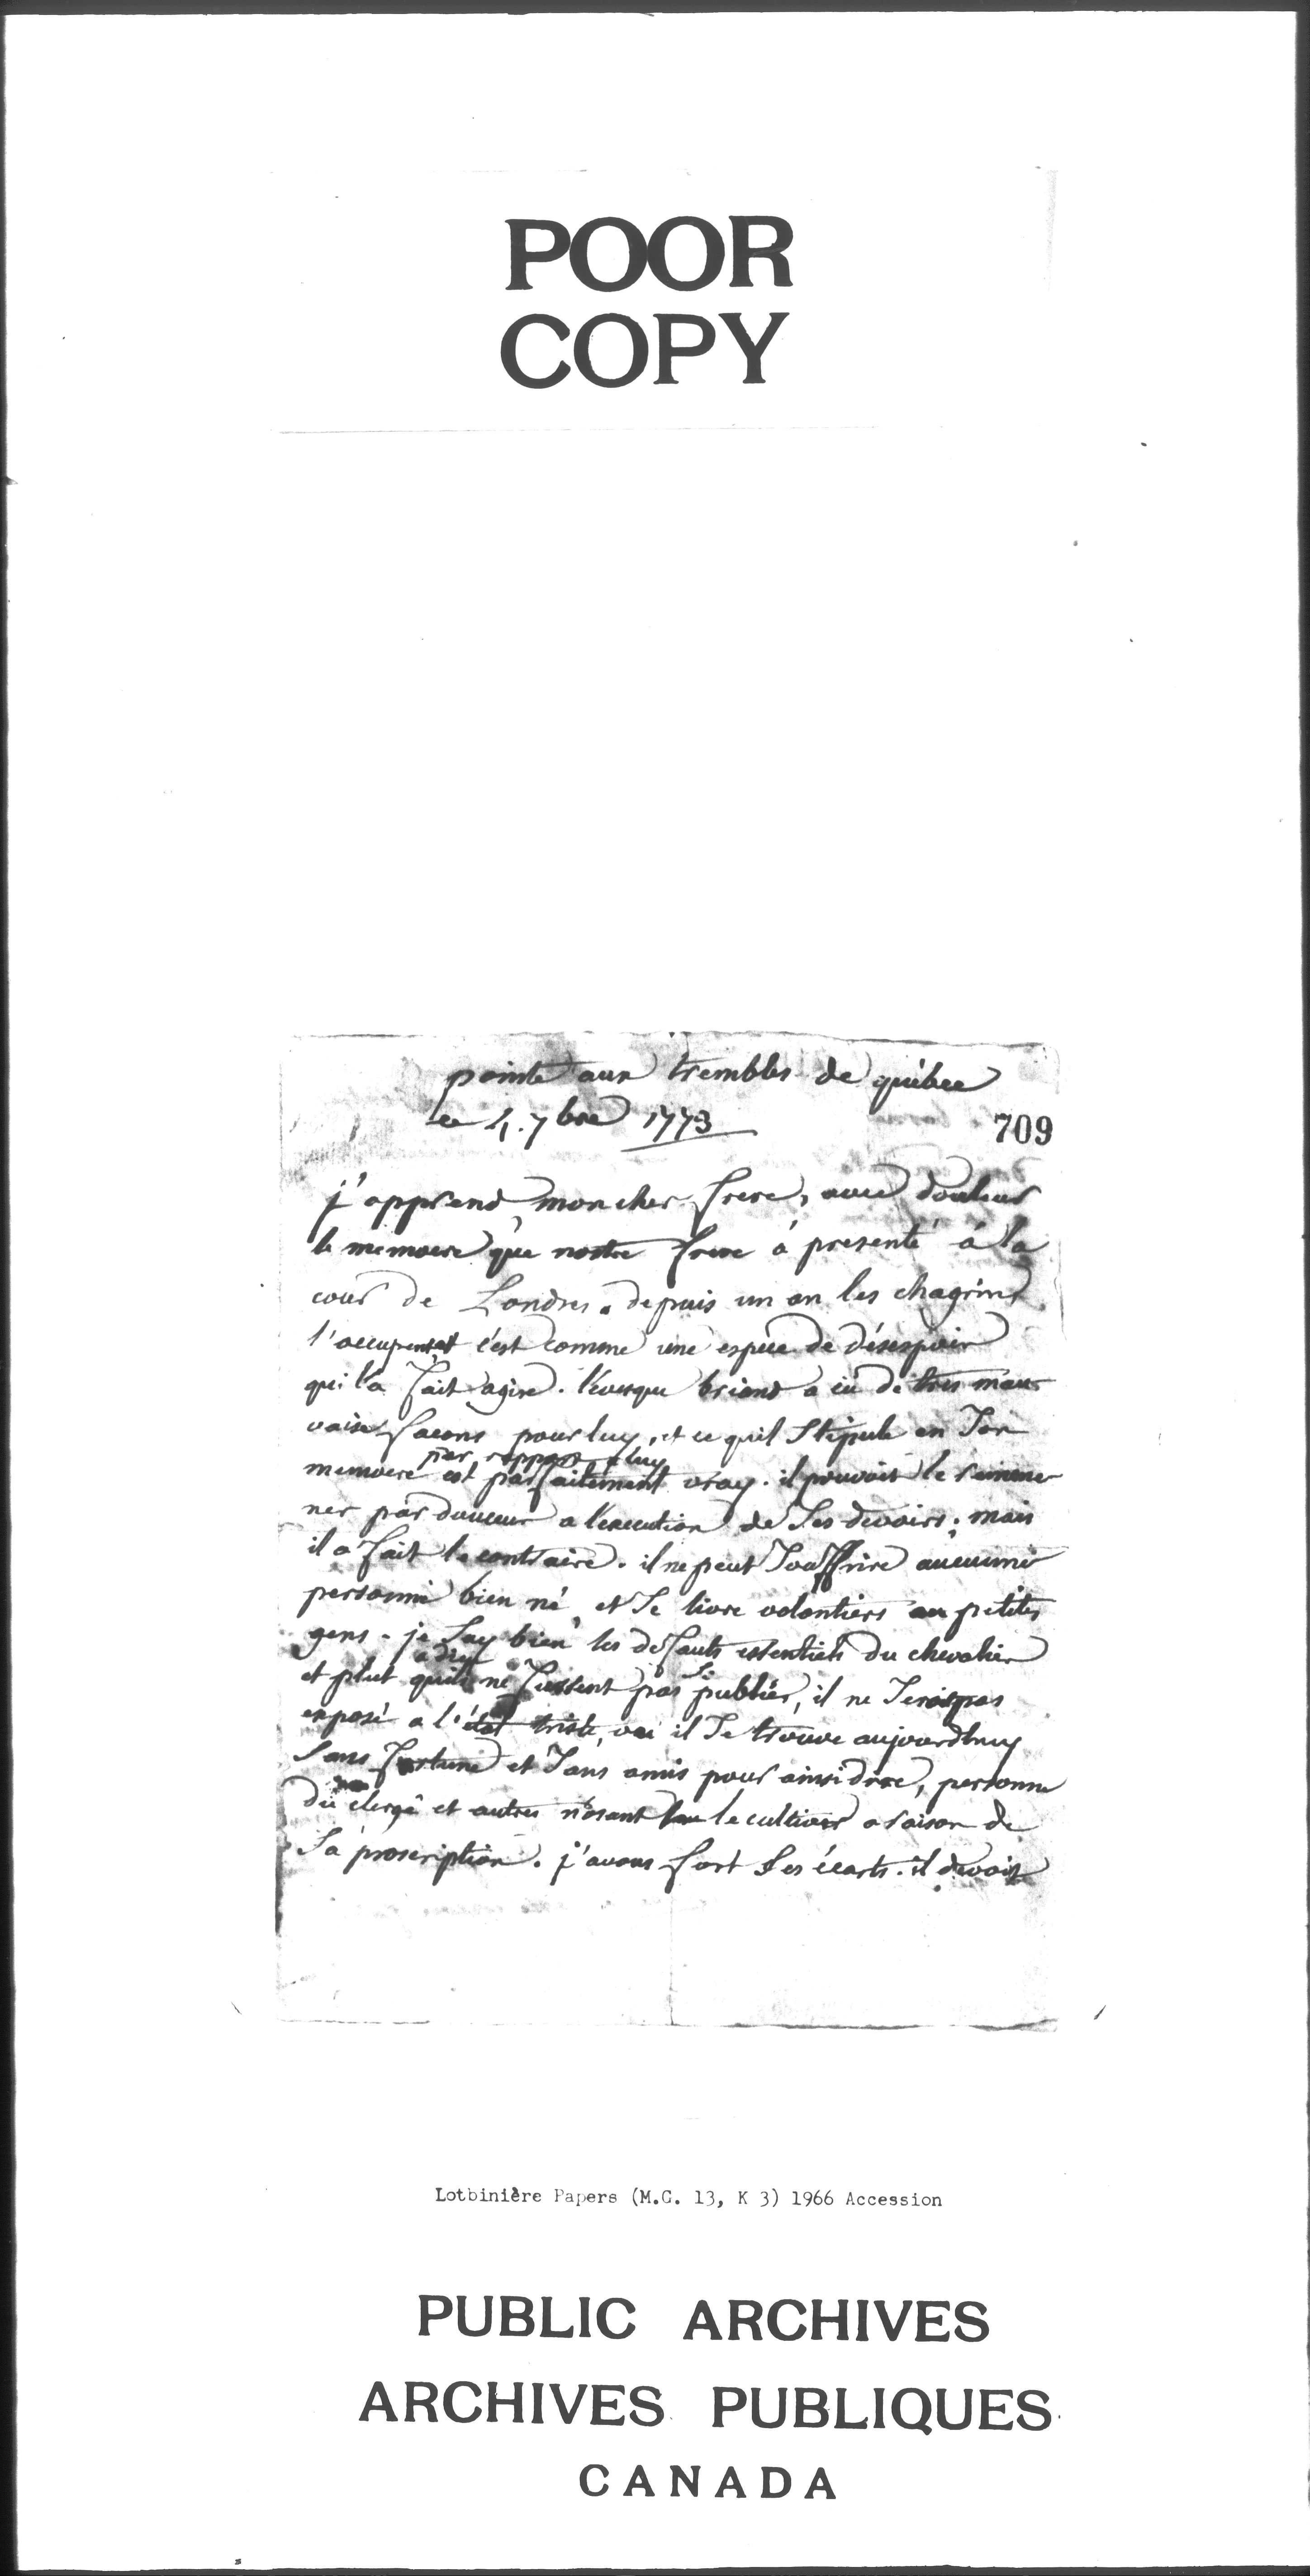 POOR
COPY
pointe aux trembles de québec
ce 4. 7bre 1773
709
j'apprend, mon cher frere, avec douleur
le memoire que nostre frere a presenté á la
cour de Londres. depuis un an les chagrins
l'accupent c'est comme une espece de désespoir
qui l'a fait agire. l'évesque briand a eu de tres mau-
vaise facons pour luy, et ce quil Stipule en Son
par rapport a luy
memoire est parfaitement vray. il pouvoit le ramme-
ner par douceur a l'execution de Ses devoirs; mais
il a fait le contraire. il ne peut Souffrire aucunne
personne bien né et Se livre volontiers au petites
gens. je Say bien les defauts essentiels du chevalier
a dieu
et plut quils ne fussent pas Si publiés, il ne Serois pas
exposé a l'état triste, ou il Se trouve aujourdhuy
Sans fortune et Sans amis pour ainsi dire, personne
du clergé et autres n'osant le cultiver a raison de
Sa proscription. j'avous fort Ses écarts. il devoit
Lotbinière Papers (M.G. 13, K 3) 1966 Accession
PUBLIC ARCHIVES
ARCHIVES PUBLIQUES
CANADA